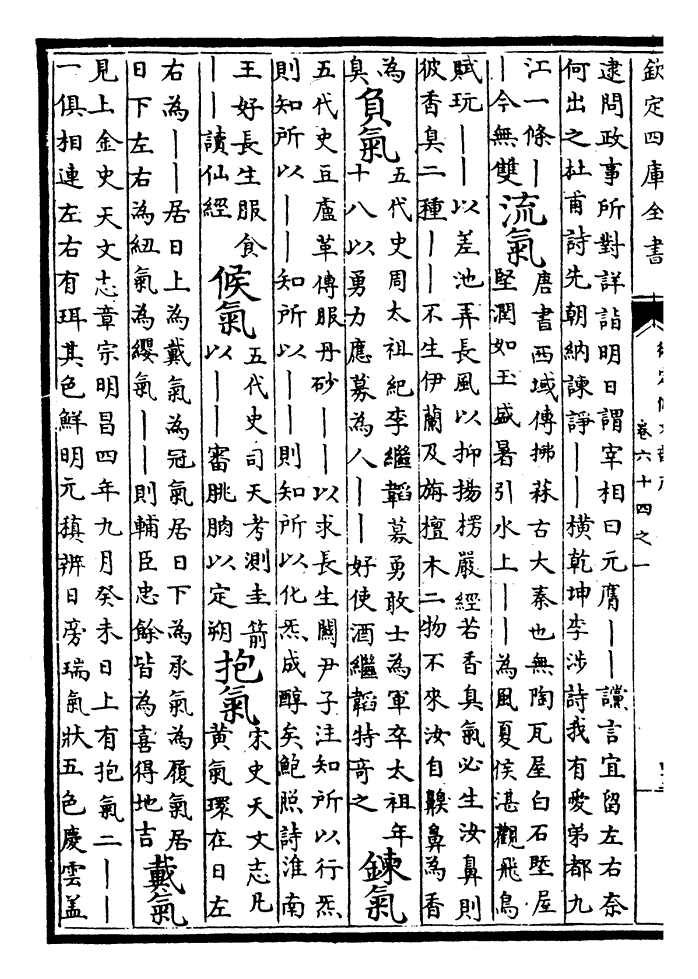 欽定四庫全書
卷六十四之一
逮問政事所對詳詣明日謂宰相曰元膺——讜言宜留左右奈
何出之杜甫詩先朝納諫諍——橫乾坤李涉詩我有愛弟都九
江一條—
—今無雙
流氣
唐書西域傳拂菻古大秦也無陶瓦屋白石塈屋
堅潤如玉盛暑引水上——為風夏侯湛觀飛鳥
賦玩——以差池弄長風以抑揚楞嚴經若香臭氣必生汝鼻則
彼香臭二種——不生伊蘭及旃檀木二物不來汝自齅鼻為香
為
臭
負氣
五代史周太祖紀李繼韜募勇敢士為軍卒太祖年
十八以勇力應募為人——好使酒繼韜特奇之
鍊氣
五代史豆盧革傳服丹砂——以求長生關尹子注知所以行炁
則知所以——知所以——則知所以化炁成醇矣鮑照詩淮南
王好長生服食
——讀仙經
候氣
五代史司天考測圭箭
以——審朓朒以定朔
抱氣
宋史天文志凡
黃氣環在日左
右為——居日上為戴氣為冠氣居日下為承氣為履氣居
日下左右為紐氣為纓氣——則輔臣忠餘皆為喜得地吉
戴氣
見上金史天文志章宗明昌四年九月癸未日上有抱氣二——
一俱相連左右有珥其色鮮明元稹辨日旁瑞氣狀五色慶雲蓋